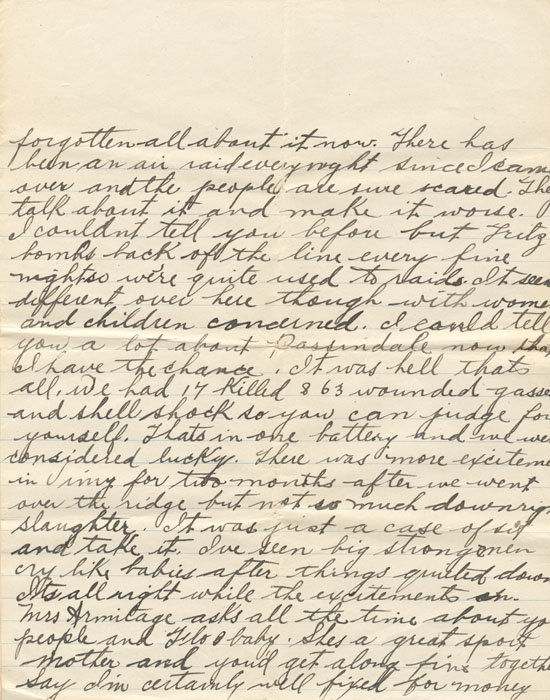 forgotten all about it now. There has
been an air raid every night since I came
over and the people are sure scared. The
talk about it and make it worse.
I couldnt tell you before but Fritz
bombs back of the line every fine
night so we're quite used to raids. It seem
different over here though with wome
and children concerned. I could tell
you a lot about Passindale now tha
I have the chance. It was hell thats
all. We had 17 killed & 63 wounded gasse
and shell shock so you can judge for
yourself. Thats in one battery and we wer
considered lucky. There was more exciteme
in Vimy for two months after we went
over the ridge but not so much downrig
slaughter. It was just a case of sit
and take it. I've seen big strong men
cry like babies after things quieted down
Its all right while the excitements on.
Mrs Armitage asks all the time about yo
people and Flo & baby. Shes a great sport
mother and you'd get along fine togethe
Say I'm certainly well fixed for money